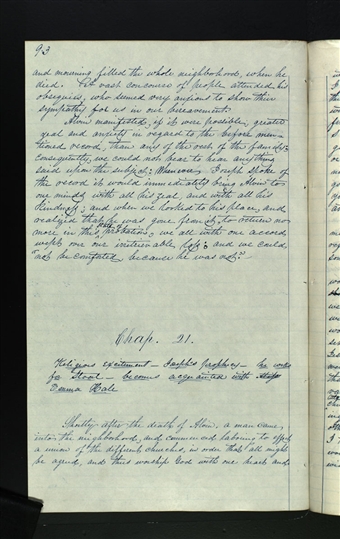 93
and mourning filled the whole neighborhood, when he
died. A vast concourse of people attended his
obsequies, who seemed very anxious to show their
sympathy for us in our bereavement.
Alvin manifested, if it were possible, greater
zeal and anxiety in regard to the before men-
tioned record, than any of the rest of the family:
consequently, we could not bear to hear anything
said upon the subject: Whenever Joseph spoke of
the record it would immediately bring Alvin to
our minds, with all his zeal, and with all his
kindness; and when we looked to his place, and
realized that he was gone from it, to return no
more in this state of probation; we all with one accord
wept over our irretrievable loss; and we could
"not be comforted because he was not."
Chap. 21.
Religious excitement — Joseph's prophecy — he works
for Stoal — becomes acquainted with
Emma Hale
Shortly after the death of Alvin, a man came
into the neighborhood, and commenced laboring to effect
a union of the different churches, in order that all might
be agreed, and thus worship God with one heart and